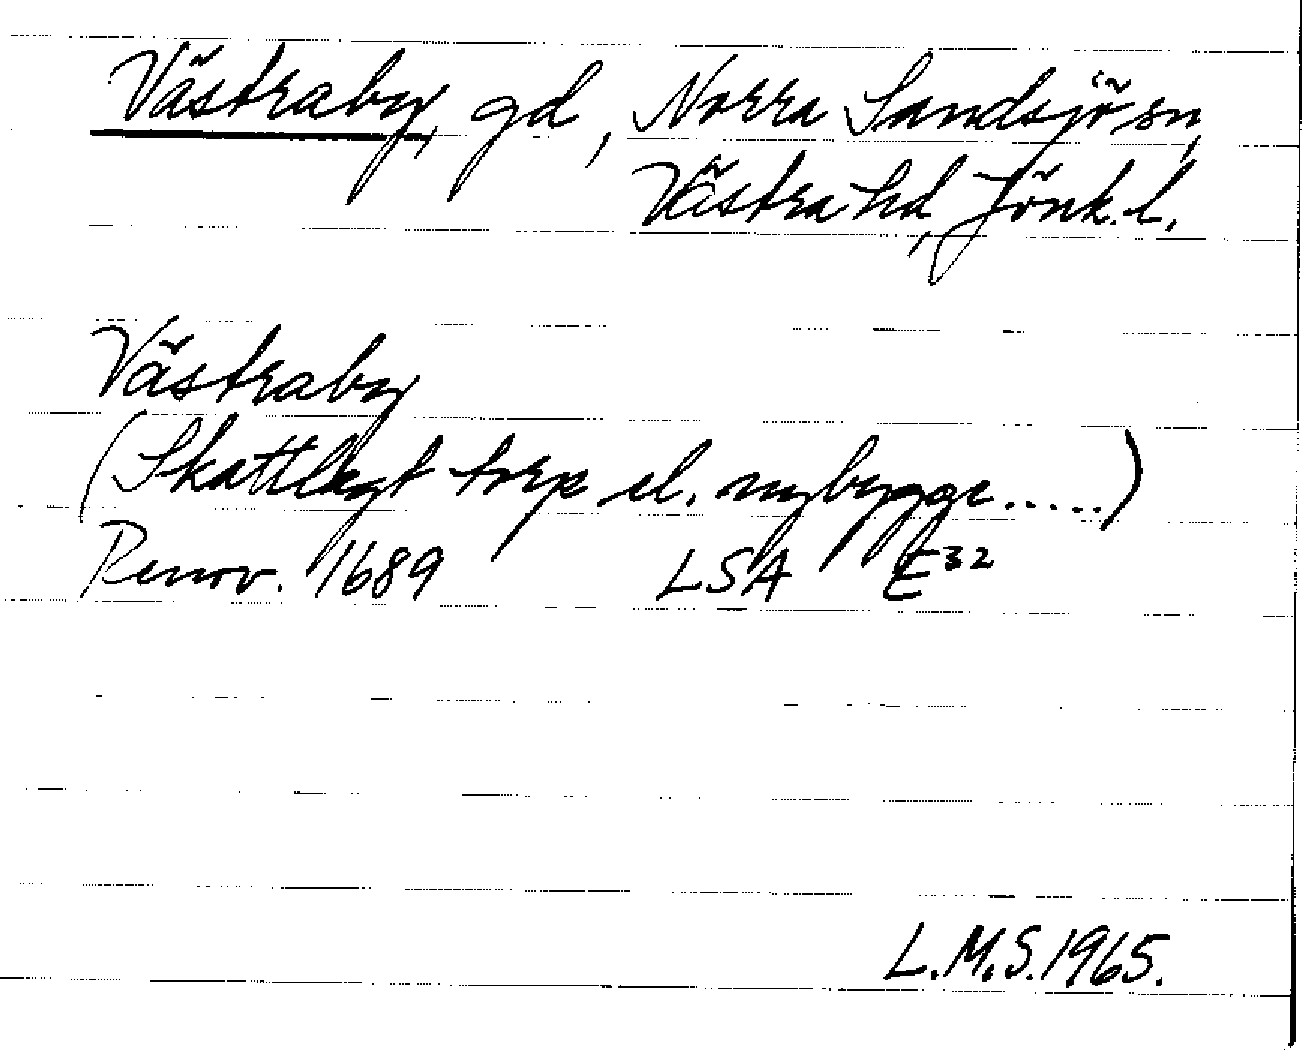 Västraby, gd, Norra Sandsjö sn,
Västra hd, Jönk.l.
Västraby
(Skattlagt torp el. nybygge.....)
Renov. 1689 LSA E32
L.M.S. 1965.